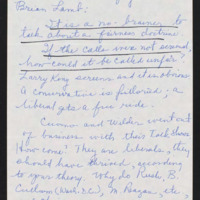 Brian Lamb:
It is a no-brainer to
talk about a fairness doctrine.
If the calls are not screened,
how could it be called unfair?
Larry King screens and
A conservative is filtered; a
liberal gets a free ride.
Cuomo and Wilder went out
of business with their talk shows.
How come? They are liberals, they
should have thrived, according
to your theory. Why do Rush, B.
(Wash. D.C.), M. Reagan, etc.,